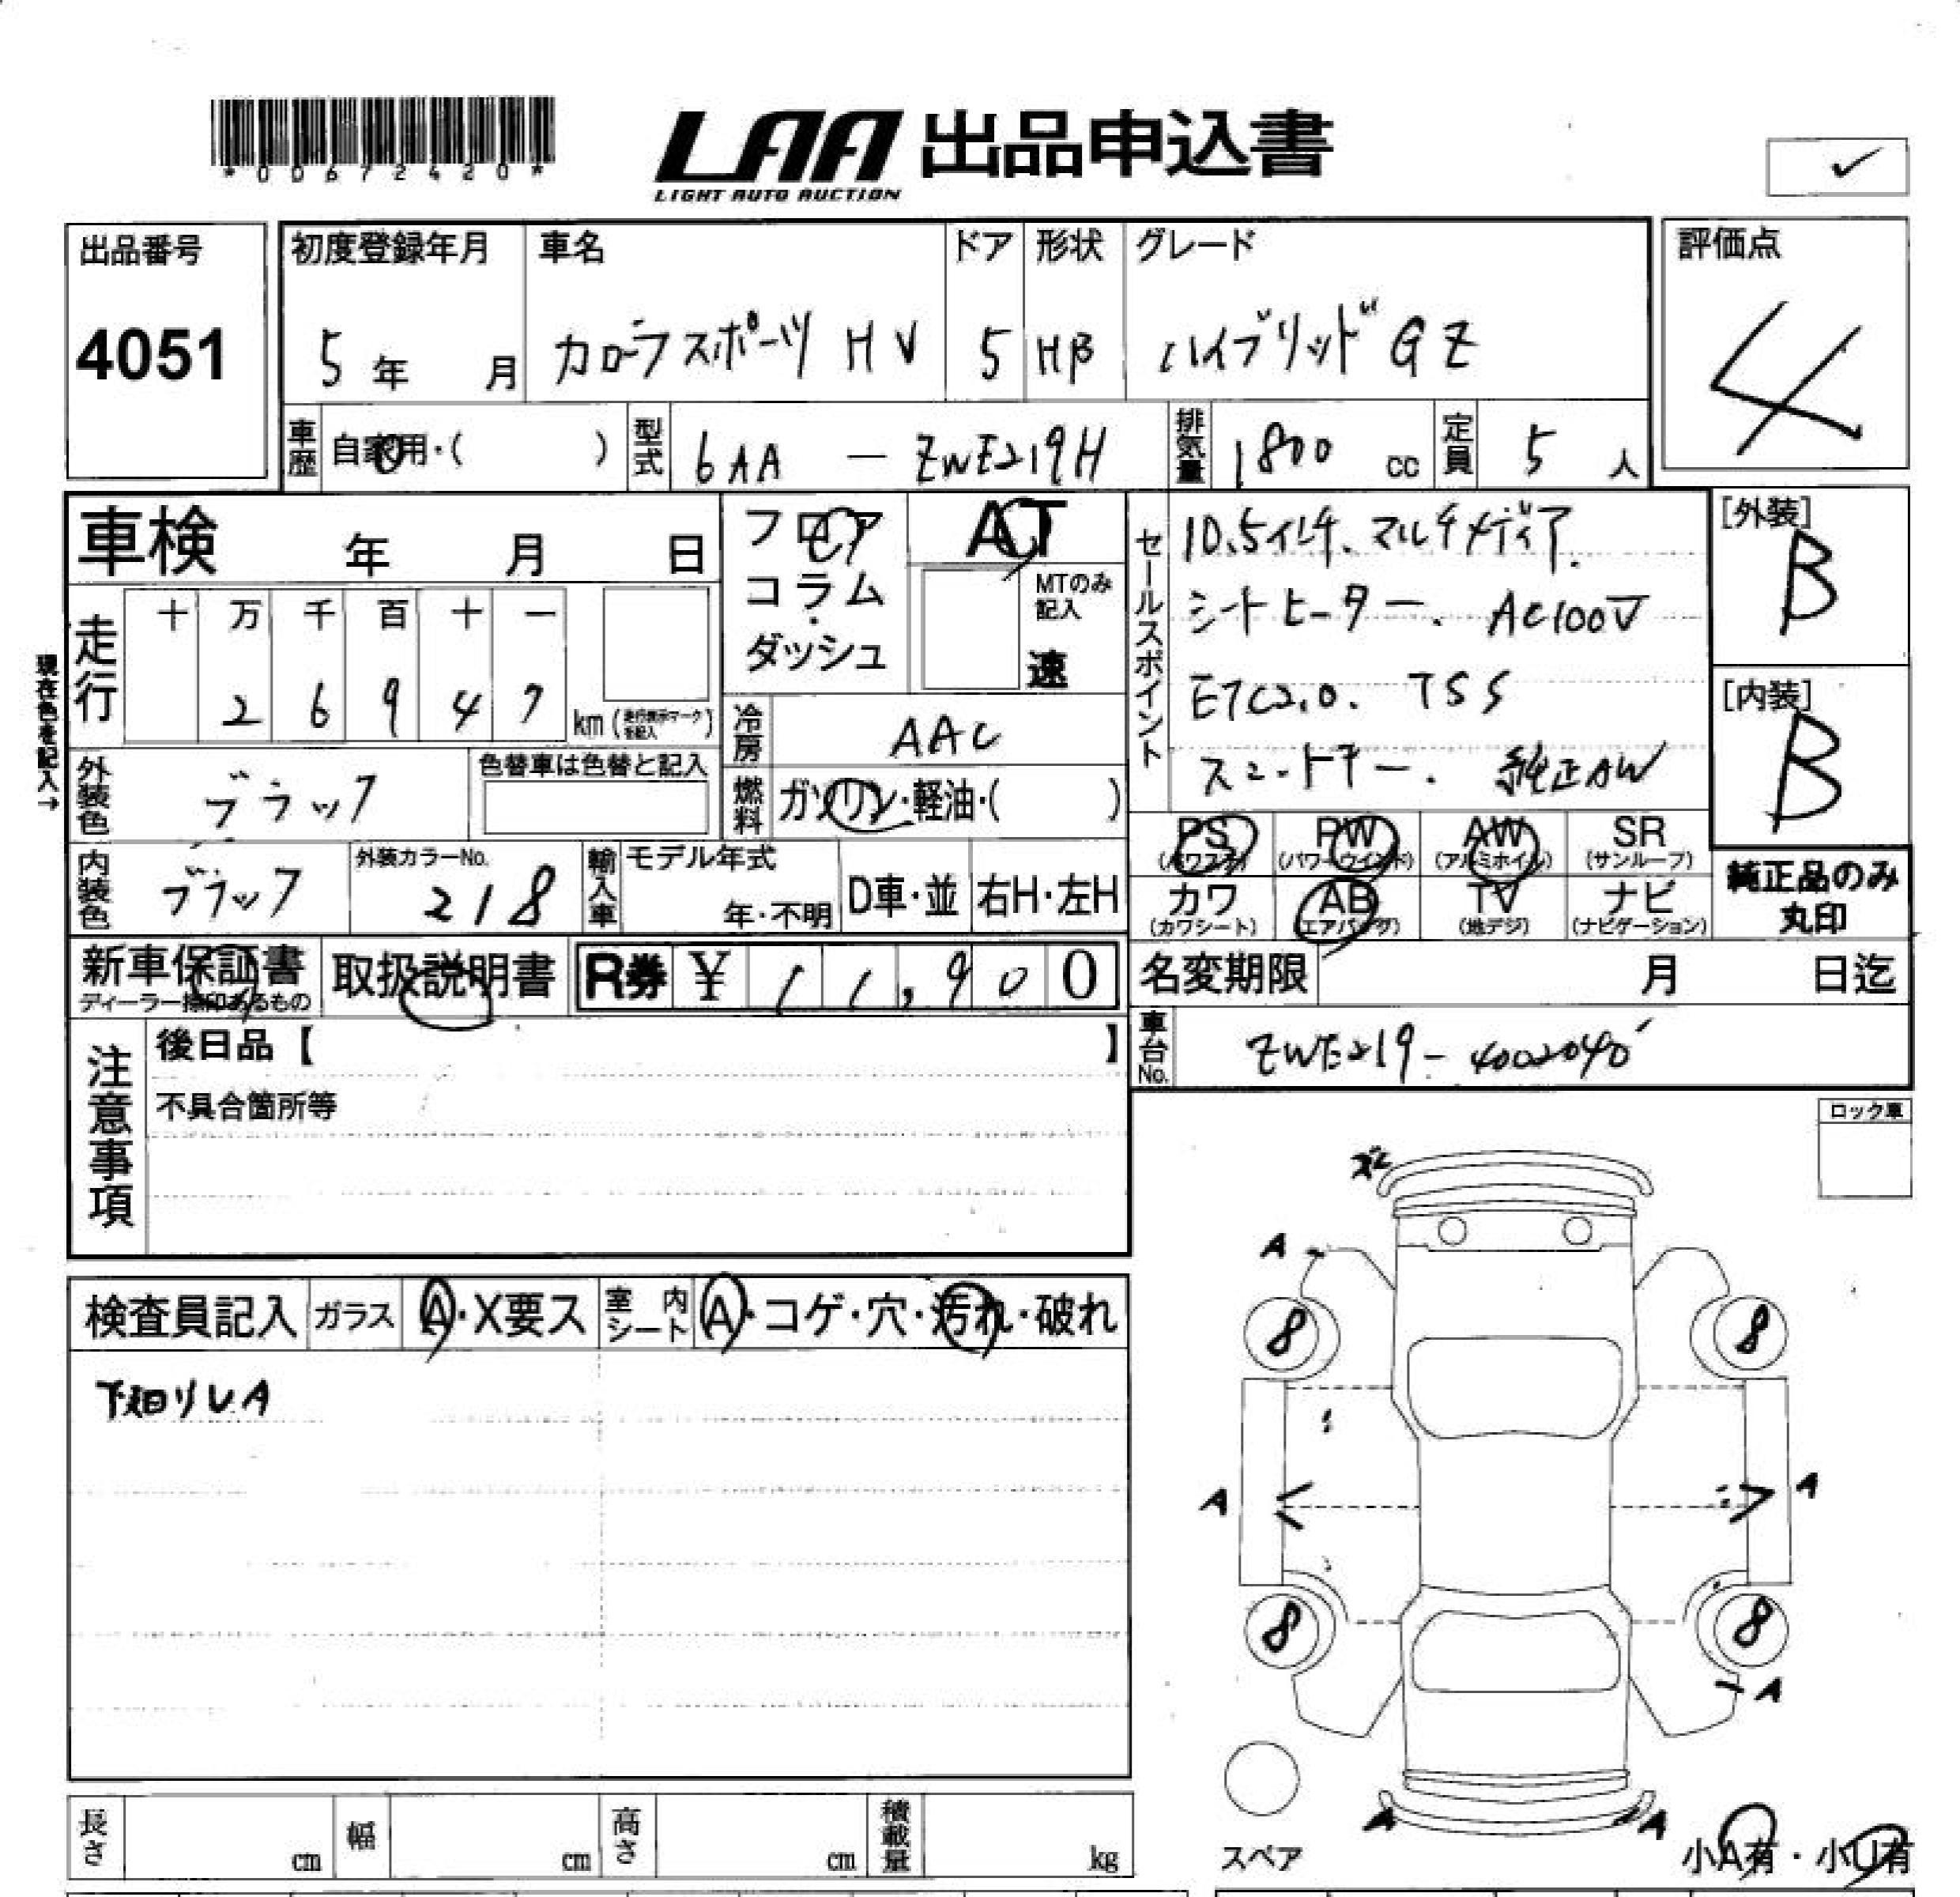 *00672420*
LAA 出品申込書
LIGHT AUTO AUCTION
出品番号
4051
初度登録年月
5年 月
車名
カローラスポーツ HV
ドア
5
形状
HB
グレード
ハイブリッド GZ
評価点
4
車歴 自家用・( )
型式 6AA - ZWE219H
排気量 1800 cc
定員 5 人
車検 年 月 日
フロア
コラム
・
ダッシュ
AT
MTのみ
記入
速
セールスポイント
10.5インチ、マルチメディア.
シートヒーター. AC100V
ETC2.0. TSS
スマートキー. 純正AW
[外装]
B
[内装]
B
現在色を記入→
走行
十 万 千 百 十 一
2 6 9 4 7
km (走行表示マークを記入)
冷房 AAC
外装色 ブラック
色替車は色替と記入
燃料 ガソリン・軽油・( )
内装色 ブラック
外装カラーNo.
218
輸入車
モデル年式
年・不明
D車・並
右H・左H
PS
(パワステ)
PW
(パワーウインド)
AW
(アルミホイル)
SR
(サンルーフ)
カワ
(カワシート)
AB
(エアバッグ)
TV
(地デジ)
ナビ
(ナビゲーション)
純正品のみ
丸印
新車保証書
取扱説明書
R券 ¥ 11,900
名変期限 月 日迄
車台No. ZWE219-4002040
注意事項
後日品【 】
不具合箇所等
ロック車
検査員記入
ガラス A・X要ス
室内シート A・コゲ・穴・汚れ・破れ
下廻りSA
A
8
8
A
A
8
8
A
A
A
スペア
小A有・小U有
長さ cm
幅 cm
高さ cm
積載量 kg